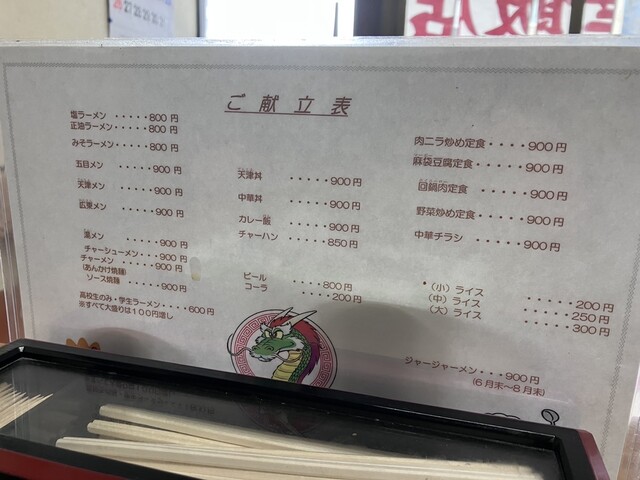 26 27 28 29 30
飯店
ご献立表
塩ラーメン ・・・・・800円
正油ラーメン・・・・・800円
みそラーメン・・・・・800円
五目メン ・・・・・900円
天津メン ・・・・・900円
広東メン ・・・・・900円
・・・・・900円
チャーシューメン・・・900円
チャーメン ・・・・・900円
(あんかけ焼麺)
ソース焼麺 ・・・・・900円
高校生のみ・学生ラーメン・・・・600円
※すべて大盛りは100円増し
天津丼 ・・・・・900円
中華丼 ・・・・・900円
カレー飯 ・・・・・900円
チャーハン ・・・・・850円
ビール ・・・・・800円
コーラ ・・・・・200円
肉ニラ炒め定食・・・・900円
麻袋豆腐定食・・・・・900円
回鍋肉定食 ・・・・・900円
野菜炒め定食・・・・・900円
中華チラシ ・・・・・900円
・(小)ライス ・・・・・200円
(中)ライス ・・・・・250円
(大)ライス ・・・・・300円
ジャージャーメン・・・900円
(6月末〜8月末)